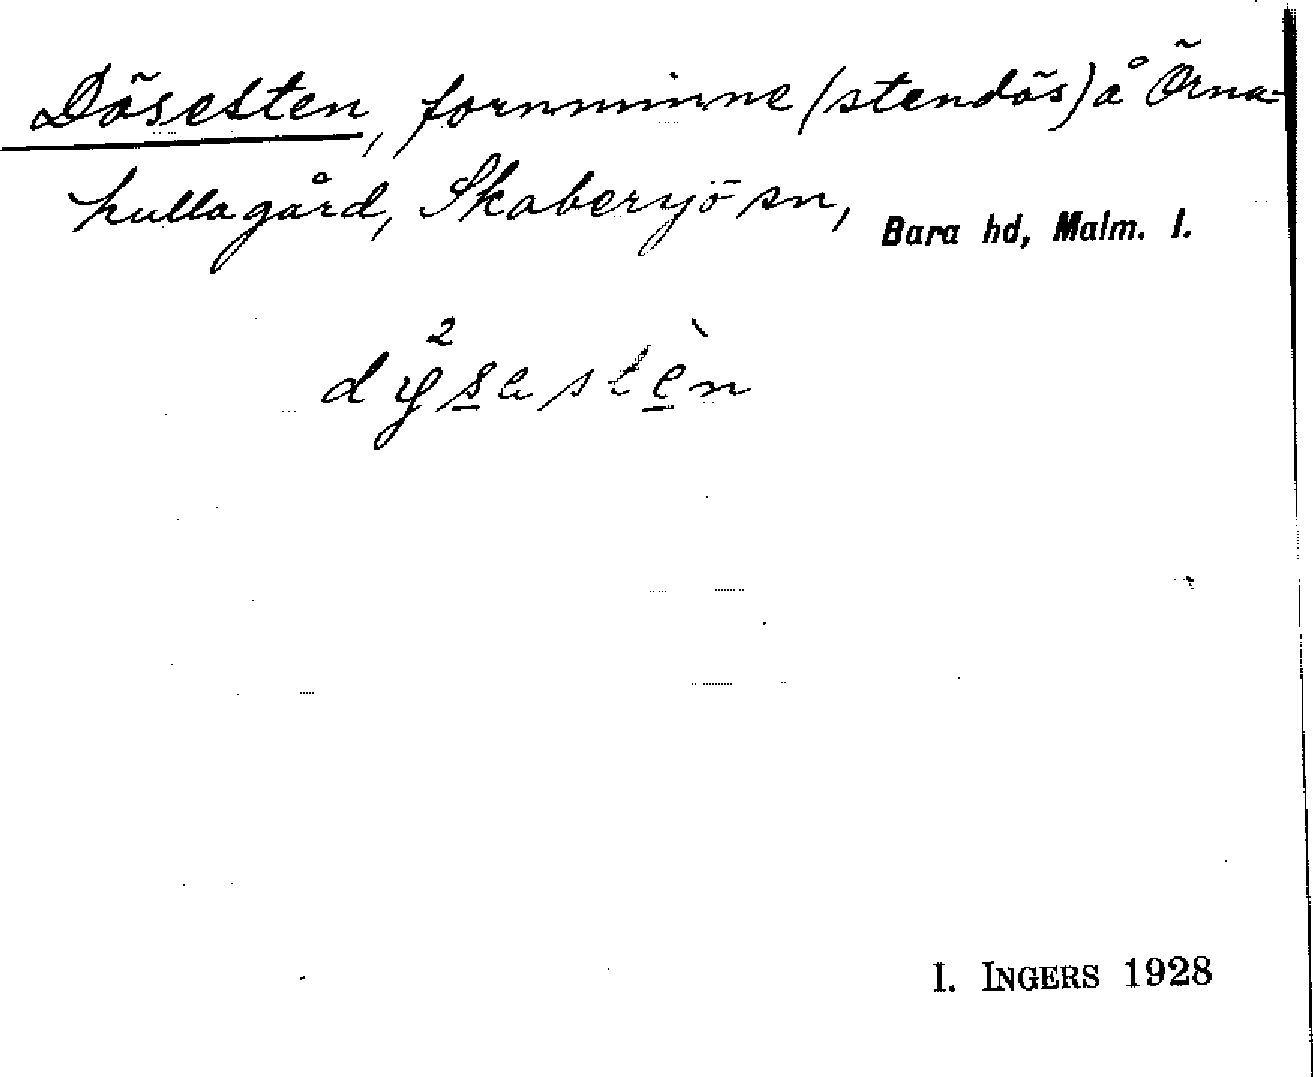 Dösesten, fornminne (stendös) å Örna-
hullagård, Skabersjö sn, Bara hd, Malm. l.
I. INGERS 1928